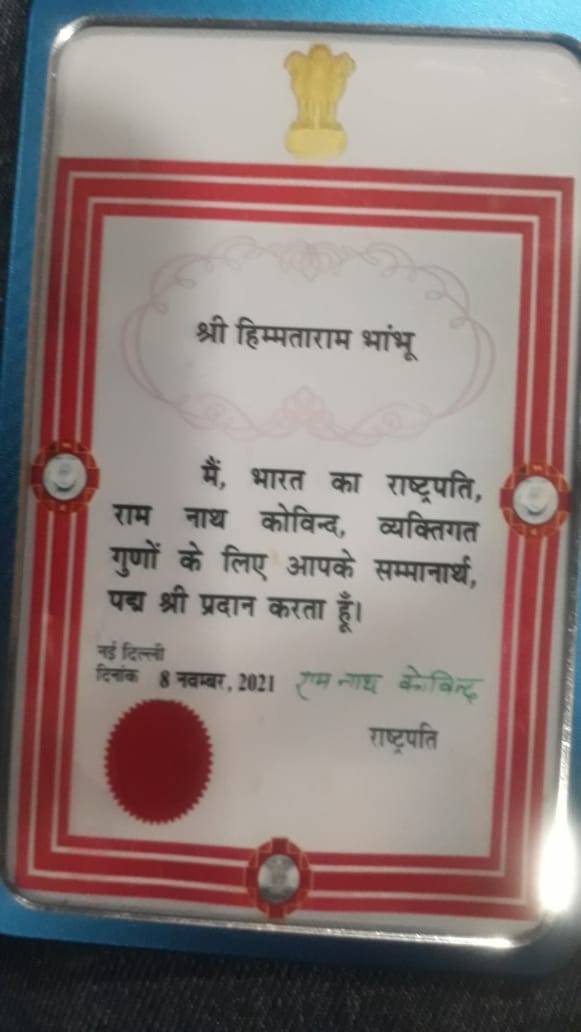 श्री हिम्मताराम भांभू
मैं, भारत का राष्ट्रपति,
राम नाथ कोविन्द, व्यक्तिगत
गुणों के लिए आपके सम्मानार्थ,
पद्म श्री प्रदान करता हूँ।
नई दिल्ली
दिनांक 8 नवम्बर, 2021 राम नाथ कोविन्द
राष्ट्रपति